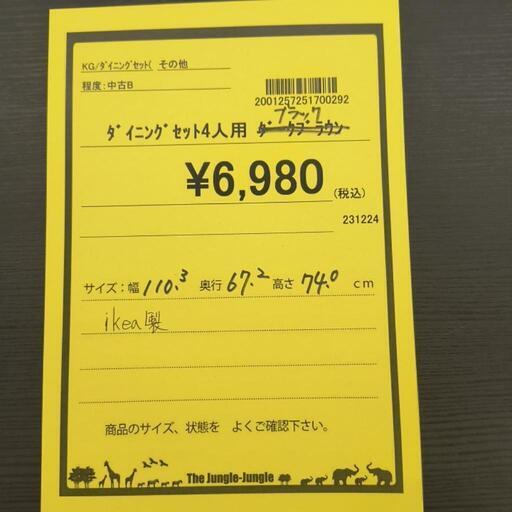 KG/ダイニングセット( その他
程度:中古B
2001257251700292
ブラック
ダイニングセット4人用 ダークブラウン
¥6,980(税込)
231224
サイズ:幅 110.3 奥行 67.2 高さ 74.0 cm
ikea製
商品のサイズ、状態を よくご確認下さい。
The Jungle-Jungle